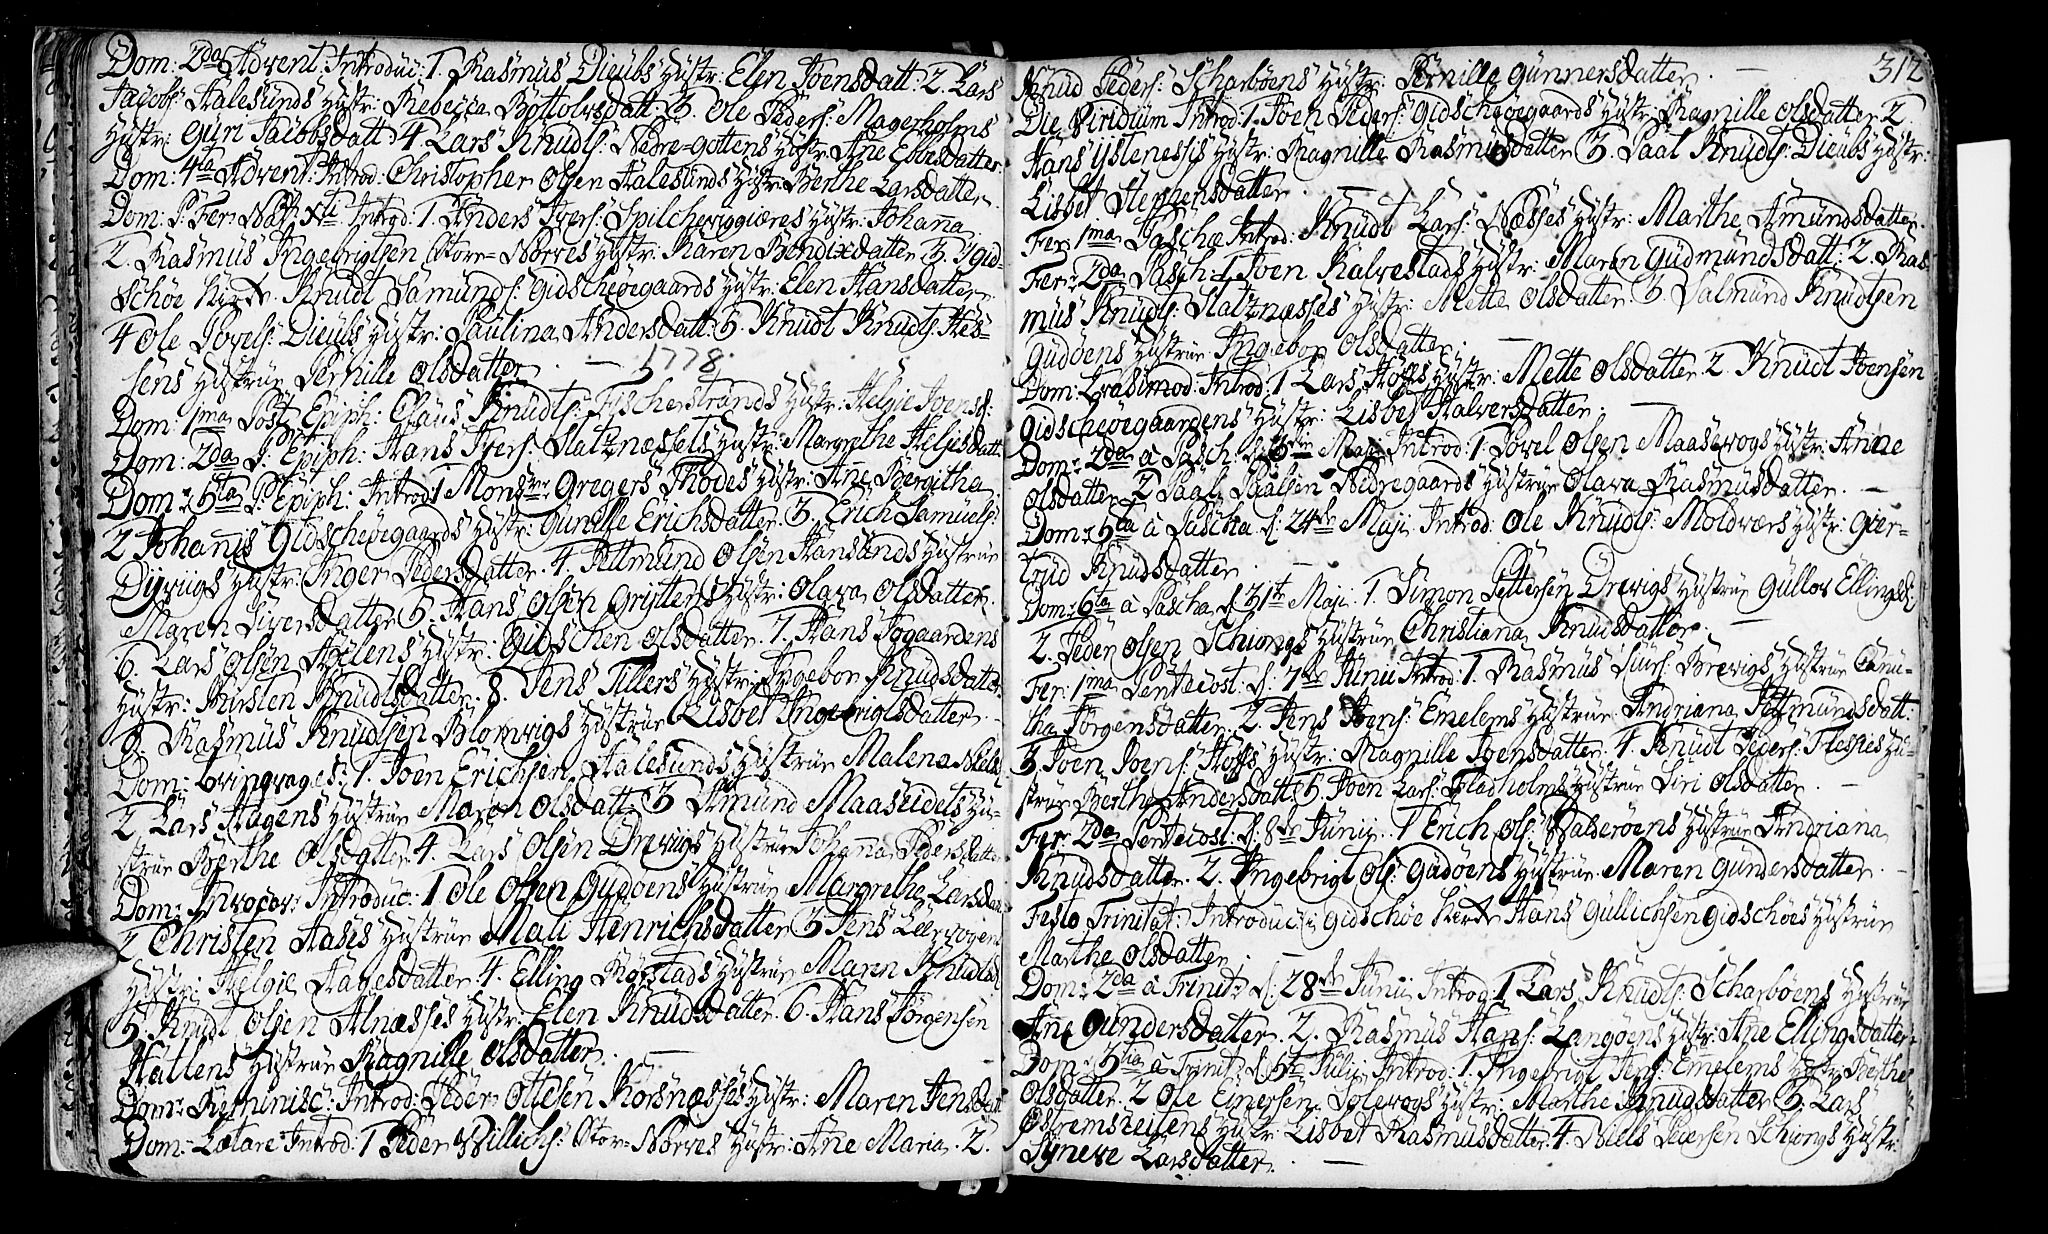 Dom: 2da Advent. Introduc: 1. Rasmus Dieubs hustr: Elen Joensdatt: 2. Lars
Jacobs: Aalesunds hustr: Rebecca Bottolvsdatt: 3. Ole Peders: Magerholms
hustr: Guri Jacobsdatt: 4. Lars Knuds: Nedre-Gottens hustr: Ane Ebbesdatter.
Dom: 4ta Advent: Introd: Christopher Olsen Aalesunds hustr: Berthe Larsdatter.
Dom: P: Fer: Nath Xti Introd: 1. Anders Ivers: Spilcheviggiæres hustr: Johana
2. Rasmus Ingebrigtsen Store-Nørves hustr: Karen Bendixdatter 3. I Gid-
schöe Kirke. Knudt Samunds: Gidschöegaards hustr: Elen Hansdatter.
4 Ole Povels: Dieubs hustr: Paulina Andersdatt: 5. Knudt Knudts: Hes-
sens hustrue Pernille Olsdatter. — 1778.
Dom: 1ma Post Epiph: Claus Knudts: Fischerstrands hustr: Helgie Joens:
Dom: 2da P: Epiph: Hans Ivers: Slatznessets hustr: Margrethe Helgesdatt:
Dom: 5ta P: Epiph: Introd: 1 Monsr Gregers Thodes hustr: Ane Bergitha
2 Johanis Gidschöegaards hustr: Gunille Erichsdatter. 3. Erich Samuels:
Dijrviigs hustr: Inger Pedersdatter. 4. Fettmund Olsen Hansunds hustrue
Maren Siversdatter 5. Hans Olsen Gryttens hustr: Olava Olsdatter.
6. Lars Olsen Axlens hustr: Gidschen Olsdatter. 7. Hans Iogaardens
hustr: Kirsten Knudtsdatter. 8. Jens Tillers hustr: Ingebor Knudsdatter
9. Rasmus Knudsen Blomvigs hustrue Lisbet Ingebrigtsdatter. —
Dom: Qvinqvages: 1. Joen Erichsen Aalesunds hustrue Malena Niels:
2 Lars Hagens hustrue Maren Olsdatt: 3 Amund Maaseidets hu-
strue Berthe Olsdatter. 4. Lars Olsen Drevigs hustrue Johana Pedersdatter
Dom: Invocav: Introduc: 1 Ole Olsen Gudöens hustrue Margrethe Larsdatt
2 Christen Aases hustrue Mali Henrichsdatter 3 Jens Leervogens
hustr: Helgie Aagesdatter. 4. Elling Rogstads hustrue Maren Knudsd:
5. Knudt Olsen Alnæsses hustr: Elen Knudsdatter. 6. Hans Jörgensen
Hatlens hustrue Ragnille Olsdatter. —
Dom: Reminisc: Introd: Peder Ottesen Korsnæsses hustr: Maren Jensdatt
Dom: Lætare Introd: 1 Peder Willichs: Stor-Nørves hustr: Ane Maria. 2.
312
Knud Peders: Scharböens hustr: Pernille Gunnersdatter. —
Die Viridium Introd: 1. Joen Peders: Gidschöegaards hustr: Ragnille Olsdatter. 2.
Hans Ystenesses hustr: Ragnille Rasmusdatter 3. Paal Knudts: Dieubs hustr:
Lisbet Stephensdatter. —
Fer: 1ma Paschæ Introd: Knudt Lars: Næsses hustr: Marthe Amundsdatter.
Fer: 2da Pasch: 1 Joen Kalvestads hustr: Maren Gudmundsdatt: 2. Ras-
mus Knudts: Slatznæsses hustr: Mette Olsdatter 3. Salmund Knudtsen
Gudöens hustrue Ingebor Olsdatter. —
Dom: Qvasimod: Introd: 1 Lars Hoffs hustr: Mette Olsdatter 2. Knudt Joensen
Gidschöegaardens hustr: Lisbet Halversdatter. —
Dom: 2da a Pasch: Maji Introd: 1 Povel Olsen Maasevogs hustr: Anne
Olsdatter 2 Paal Paalsen Nedregaards hustrue Olava Rasmusdatter. —
Dom: 5ta a Pascha d: 24de Maji Introd: Ole Knuds: Moldværs hustr: Gier-
trud Knudsdatter. —
Dom: 6ta a Pascha d 31te Maji. 1. Simon Pettersen Drevigs hustrue Gullov Ellingsd:
2. Peder Olsen Schiongs hustrue Christiana Knudsdatter.
Fer: 1ma Pentecost: d: 7de Junii Introd: 1. Rasmus Siurs: Brevigs hustrue Canu-
tha Jörgensdatter. 2 Jens Joens: Emelems hustrue Andriana Fettmundsdatt:
3 Joen Joens: Hoffs hustr: Ragnille Joensdatter. 4. Knudt Peders: Flesses hu-
strue Berthe Andersdatt: 5. Joen Lars: Fladholms hustrue Siri Olsdatter. —
Fer: 2da Pentecost: d: 8de Junij. 1 Erich Ols: Walderöens hustrue Andriana
Knudsdatter. 2. Ingebrigt Ols: Gudöens hustrue Maren Gundersdatter. —
Festo Trinitat: Introduc: i Gidschöe Kirke Hans Gullichsen Gidschöes hustrue
Marthe Olsdatter. —
Dom: 2da a Trinit: d: 28de Junii Introd: 1 Lars Knudts: Scharböens hustrue
Ane Gundersdatter. 2. Rasmus Hans: Langöens hustr: Ane Ellingsdatter.
Dom: 3tia a Trinit: d 5te Julii Introd: 1. Ingebrigt Jens: Emelems hustr: Berthe
Olsdatter. 2 Ole Einersen Solevogs hustr: Marthe Knudsdatter 3. Lars
Østremsteilens hustr: Lisbet Rasmusdatter. 4. Niels Peersen Schiongs hustr:
Synneve Larsdatter. —